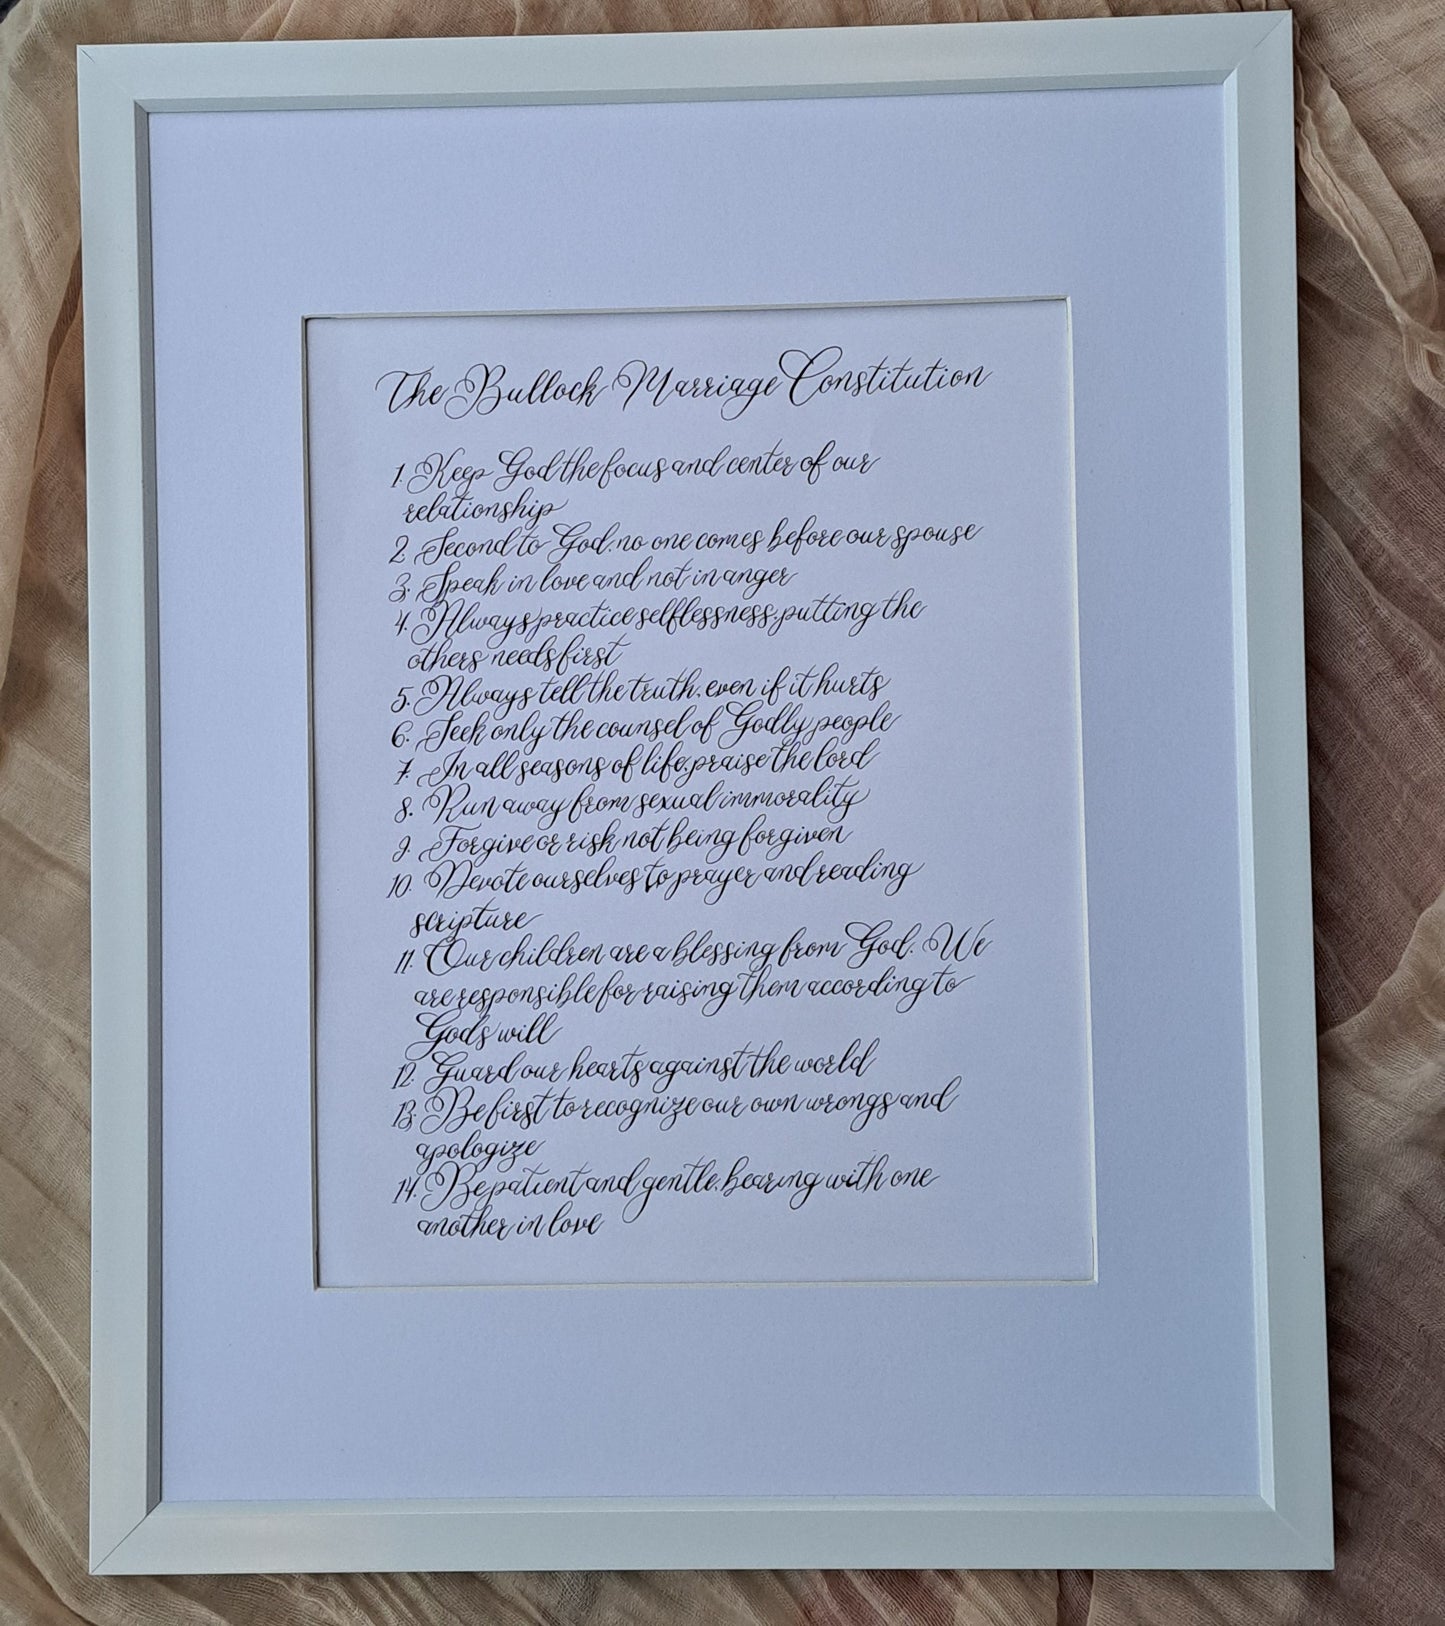 The Bullock Marriage Constitution
1. Keep God the focus and center of our
relationship
2. Second to God, no one comes before our spouse
3. Speak in love and not in anger
4. Always practice selflessness, putting the
others needs first
5. Always tell the truth, even if it hurts
6. Seek only the counsel of Godly people
7. In all seasons of life, praise the lord
8. Run away from sexual immorality
9. Forgive or risk not being forgiven
10. Devote ourselves to prayer and reading
scripture
11. Our children are a blessing from God. We
are responsible for raising them according to
Gods will
12. Guard our hearts against the world
13. Be first to recognize our own wrongs and
apologize
14. Be patient and gentle, bearing with one
another in love